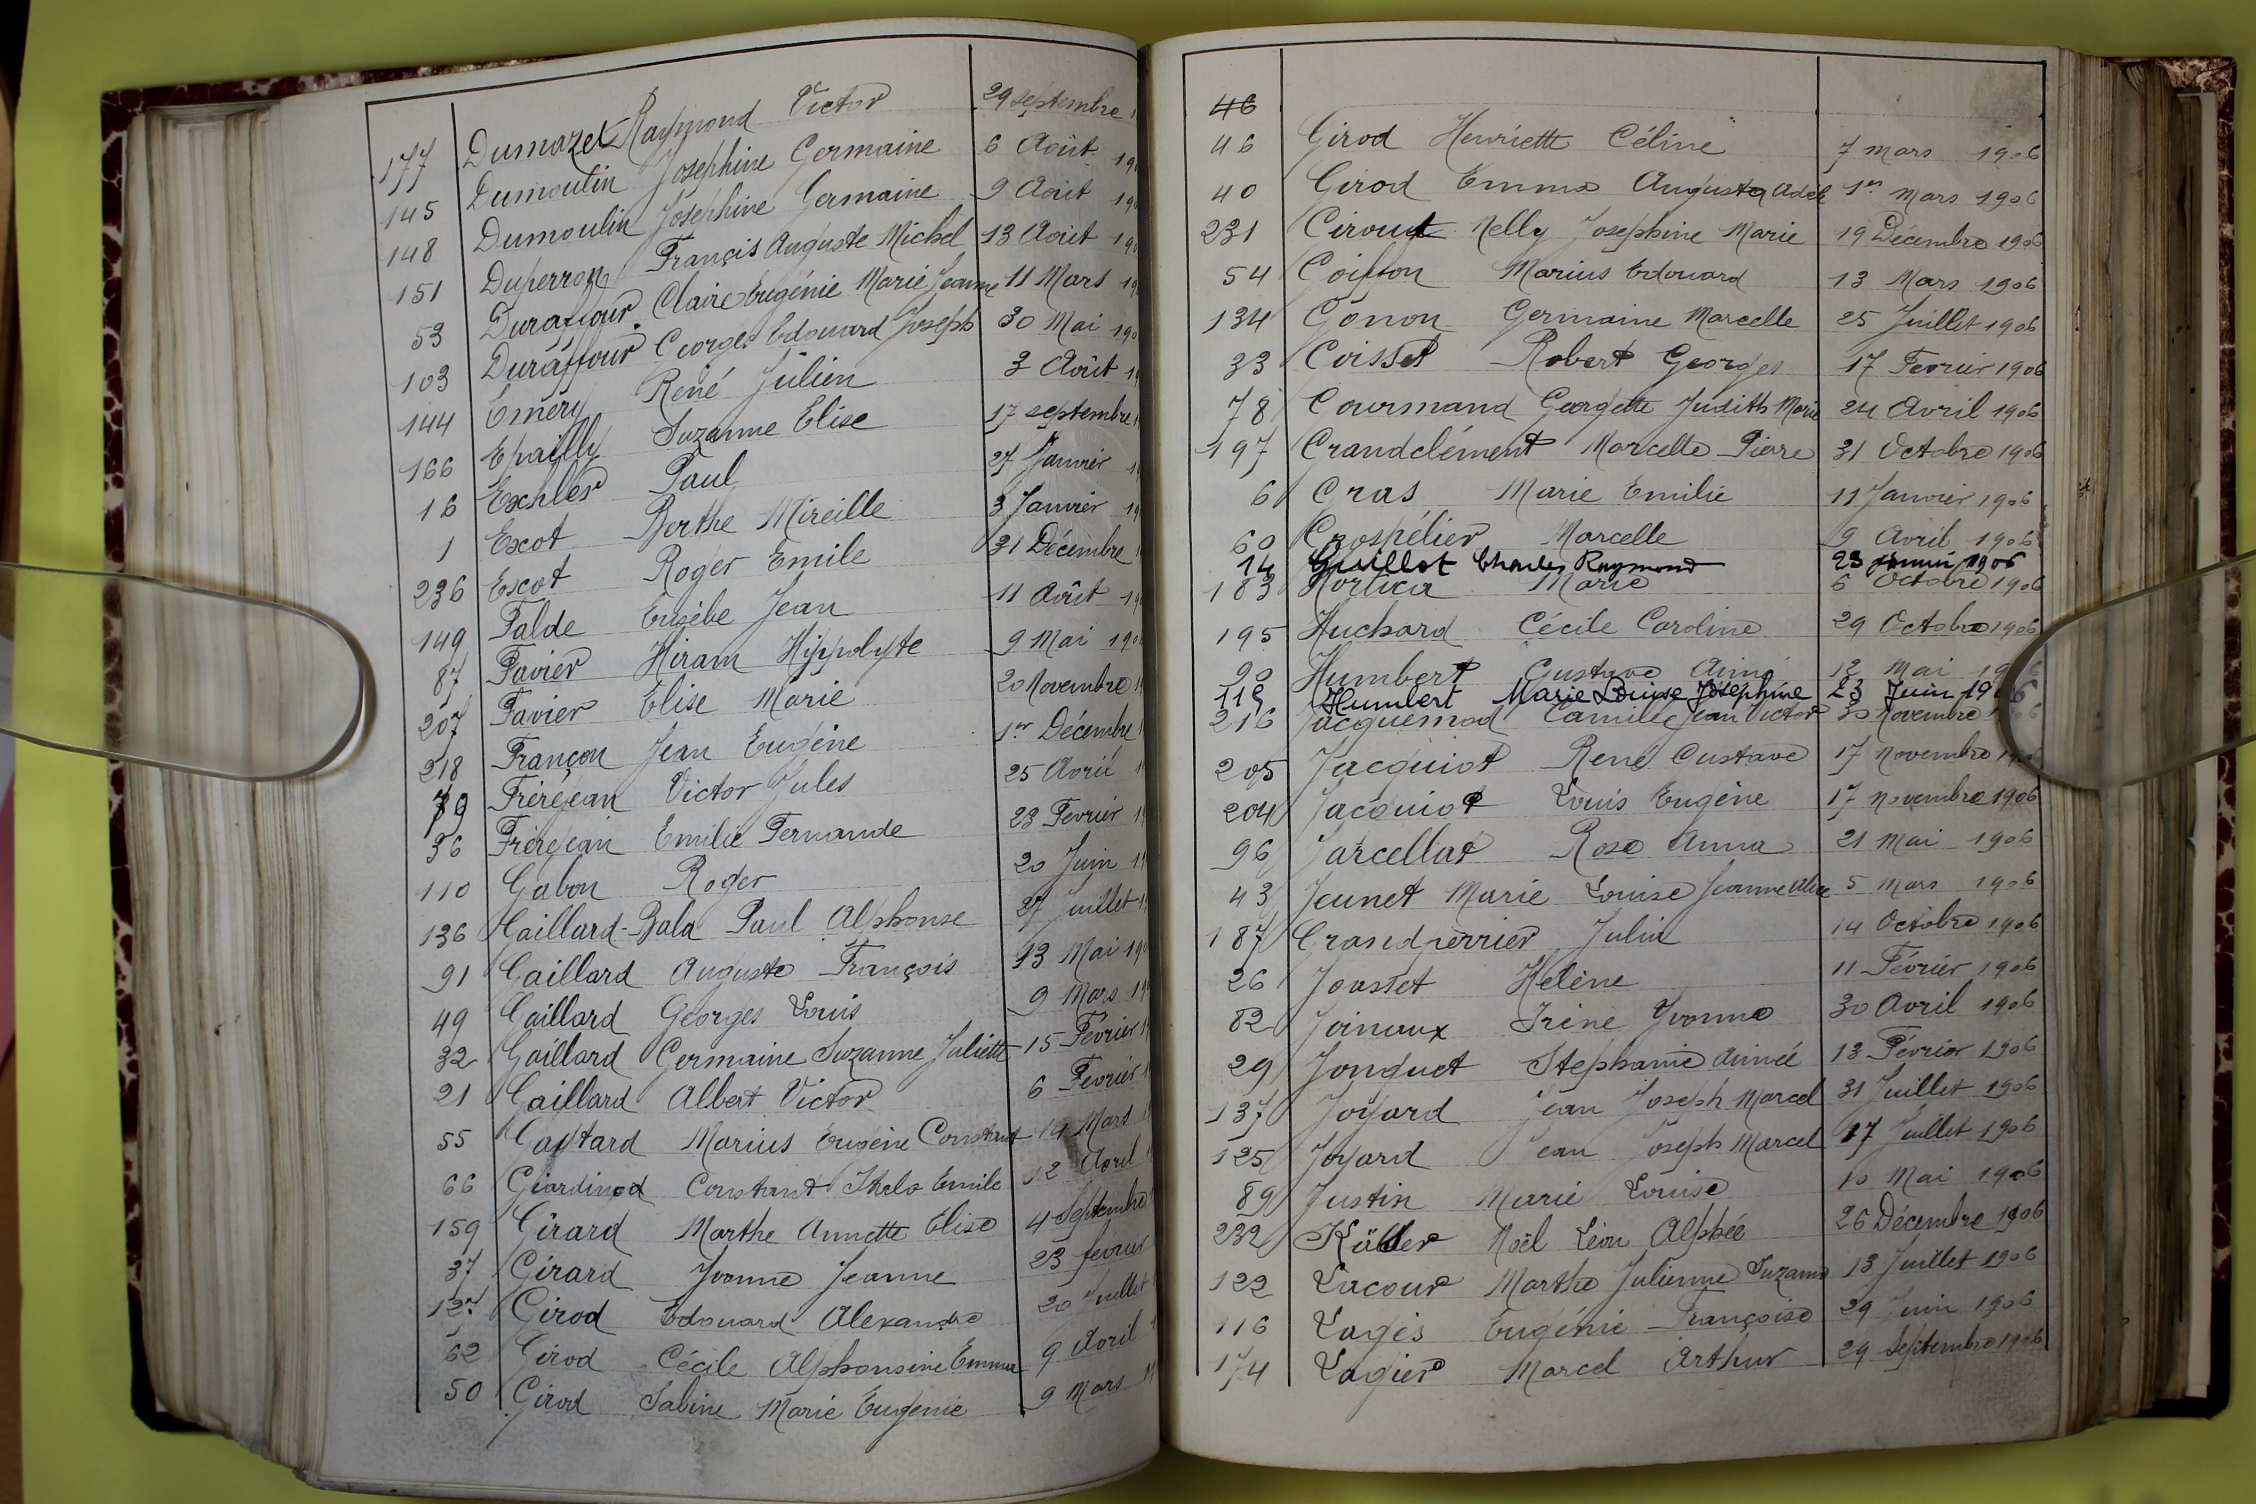 177 Dumazet Raymond Victor 29 septembre 1
145 Dumoulin Josephine Germaine 6 Août 190
148 Dumoulin Josephine Germaine 9 Août 190
151 Duperron François Auguste Michel 13 Août 190
53 Duraffour Claire Eugénie Marie Jeanne 11 Mars 19
103 Duraffour Georges Edouard Joseph 30 Mai 190
144 Eméry René Julien 3 Août 19
166 Epailly Suzanne Elise 17 septembre 1
16 Exchler Paul 27 Janvier 19
1 Escot Berthe Mireille 3 Janvier 19
236 Escot Roger Emile 31 Décembre 1
149 Falde Eusèbe Jean 11 Août 19
87 Favier Hiram Hippolyte 9 Mai 190
207 Favier Elise Marie 20 Novembre 1
218 Françon Jean Eugène 1er Décembre 1
79 Frèrejean Victor Jules 25 Avril 1
36 Frèrejean Emilie Fernande 23 Fevrier 1
110 Gabon Roger 20 Juin 19
136 Gaillard-Bala Paul Alphonse 27 Juillet 1
91 Gaillard Auguste François 13 Mai 190
49 Gaillard Georges Louis 9 Mars 19
32 Gaillard Germaine Suzanne Juliette 15 Février 1
21 Gaillard Albert Victor 6 Fevrier 1
55 Gaytard Marius Eugène Constant 14 Mars 1
66 Giardinod Constant Italo Emile 12 Avril 1
159 Girard Marthe Annette Elise 4 Septembre
37 Girard Yvonne Jeanne 23 fevrier
127 Girod Edouard Alexandre 20 Juillet
62 Girod Cécile Alphonsine Emma 9 Avril 1
50 Girod Sabine Marie Eugenie 9 Mars 1
46
46 Girod Henriette Céline 7 mars 1906
40 Girod Emma Augusta Adèle 1er Mars 1906
231 Giroud Nelly Josephine Marie 19 Décembre 1906
54 Goiffon Marius Edouard 13 Mars 1906
134 Gonon Germaine Marcelle 25 Juillet 1906
33 Goisset Robert Georges 17 Fevrier 1906
78 Gourmand Georgette Judith Marie 24 Avril 1906
197 Grandclément Marcelle Pierre 31 Octobre 1906
6 Gras Marie Emilie 11 Janvier 1906
60 Grospélier Marcelle 9 Avril 1906
14 Guillot Charles Raymond 23 Janvier 1906
183 Marie 6 Octobre 1906
195 Huchard Cécile Caroline 29 Octobre 1906
90 Humbert Gustave Aimé 12 Mai 1906
115 Humbert Marie Louise Josephine 23 Juin 1906
216 Jacquemod Camille Jean Victor 30 Novembre 1906
205 Jacquiot René Gustave 17 Novembre 1906
204 Jacquiot Louis Eugène 17 Novembre 1906
96 Jarcellat Rose Anna 21 Mai 1906
43 Jeunet Marie Louise Jeanne Alice 5 Mars 1906
187 Grandperrier Julia 14 Octobre 1906
26 Jousset Helène 11 Février 1906
82 Joinaux Irène Yvonne 30 Avril 1906
29 Jonquet Stephanie Aimée 13 Février 1906
137 Joyard Jean Joseph Marcel 31 Juillet 1906
125 Joyard Jean Joseph Marcel 17 Juillet 1906
89 Justin Marie Louise 10 Mai 1906
232 Noël Léon Alphée 26 Décembre 1906
122 Lacour Marthe Julienne Suzanne 13 Juillet 1906
116 Lagès Eugénie Françoise 29 Juin 1906
174 Lagier Marcel Arthur 29 Septembre 1906